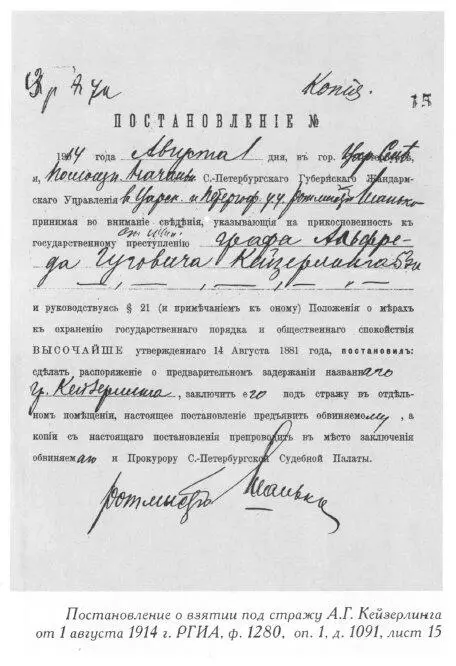 Копія.
15
ПОСТАНОВЛЕНІЕ №
1914 года Августа 1 дня, въ гор. Царск Селѣ
я, Помощн. Начальн. С.-Петербургскаго Губернскаго Жандарм-
скаго Управленія въ Царск. и Петергоф. у.у. ротмистръ
принимая во вниманіе свѣдѣнія, указывающія на прикосновенность къ
государственному преступленію графа Альфре-
да Гуговича Кейзерлинга
и руководствуясь § 21 (и примѣчаніемъ къ оному) Положенія о мѣрахъ
къ охраненію государственнаго порядка и общественнаго спокойствія
ВЫСОЧАЙШЕ утвержденнаго 14 Августа 1881 года, постановилъ:
сдѣлать распоряженіе о предварительномъ задержаніи названнаго
гр. Кейзерлинга, заключить его подъ стражу въ отдѣль-
номъ помѣщеніи, настоящее постановленіе предъявить обвиняемому, а
копіи съ настоящаго постановленія препроводить въ мѣсто заключенія
обвиняемаго и Прокурору С.-Петербургской Судебной Палаты.
ротмистръ
Постановление о взятии под стражу А.Г. Кейзерлинга
от 1 августа 1914 г. РГИА, ф. 1280, оп. 1, д. 1091, лист 15